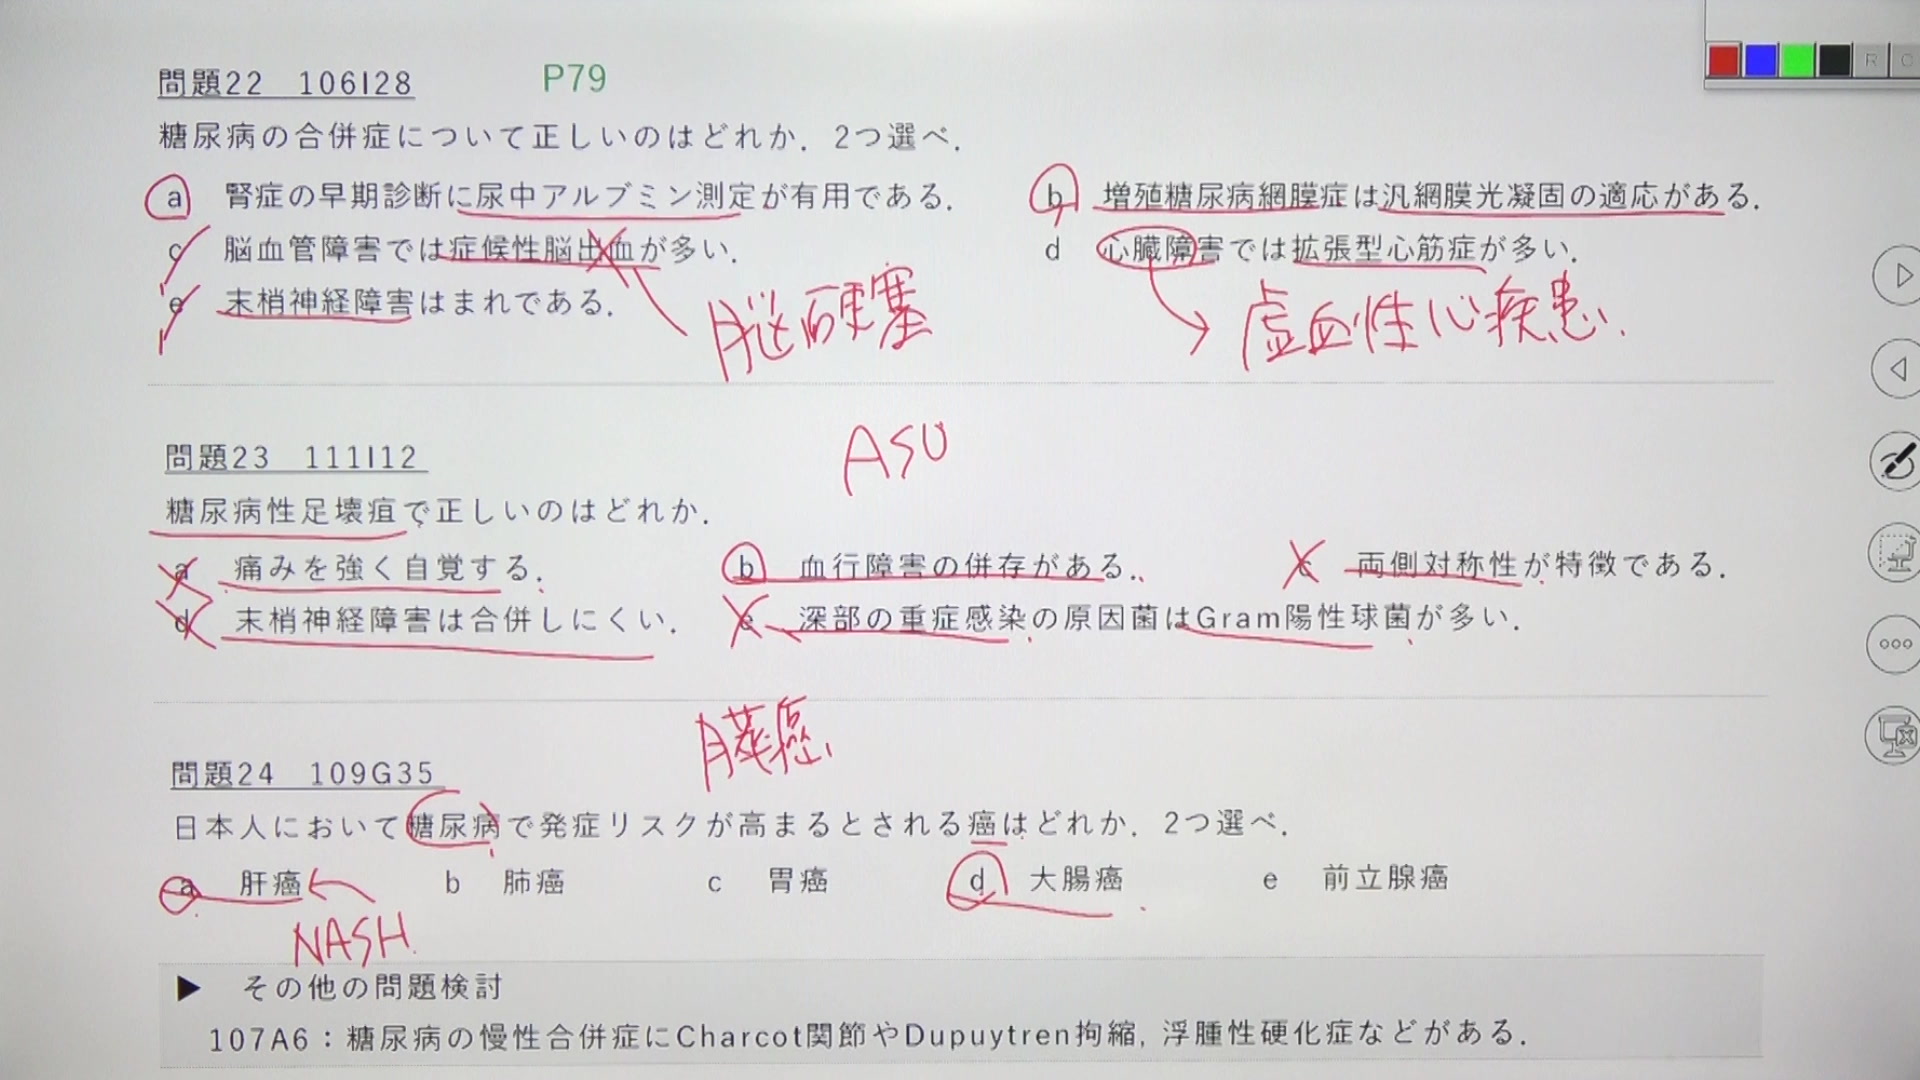 問題22　106I28　P79
糖尿病の合併症について正しいのはどれか．2つ選べ．
a　腎症の早期診断に尿中アルブミン測定が有用である．　b　増殖糖尿病網膜症は汎網膜光凝固の適応がある．
c　脳血管障害では症候性脳出血が多い．　d　心臓障害では拡張型心筋症が多い．
e　末梢神経障害はまれである．
脳硬塞　虚血性心疾患．
ASO
問題23　111I12
糖尿病性足壊疽で正しいのはどれか．
a　痛みを強く自覚する．　b　血行障害の併存がある．　c　両側対称性が特徴である．
d　末梢神経障害は合併しにくい．　e　深部の重症感染の原因菌はGram陽性球菌が多い．
膵癌
問題24　109G35
日本人において糖尿病で発症リスクが高まるとされる癌はどれか．2つ選べ．
a　肝癌　b　肺癌　c　胃癌　d　大腸癌　e　前立腺癌
NASH
▶　その他の問題検討
107A6：糖尿病の慢性合併症にCharcot関節やDupuytren拘縮, 浮腫性硬化症などがある．
R C